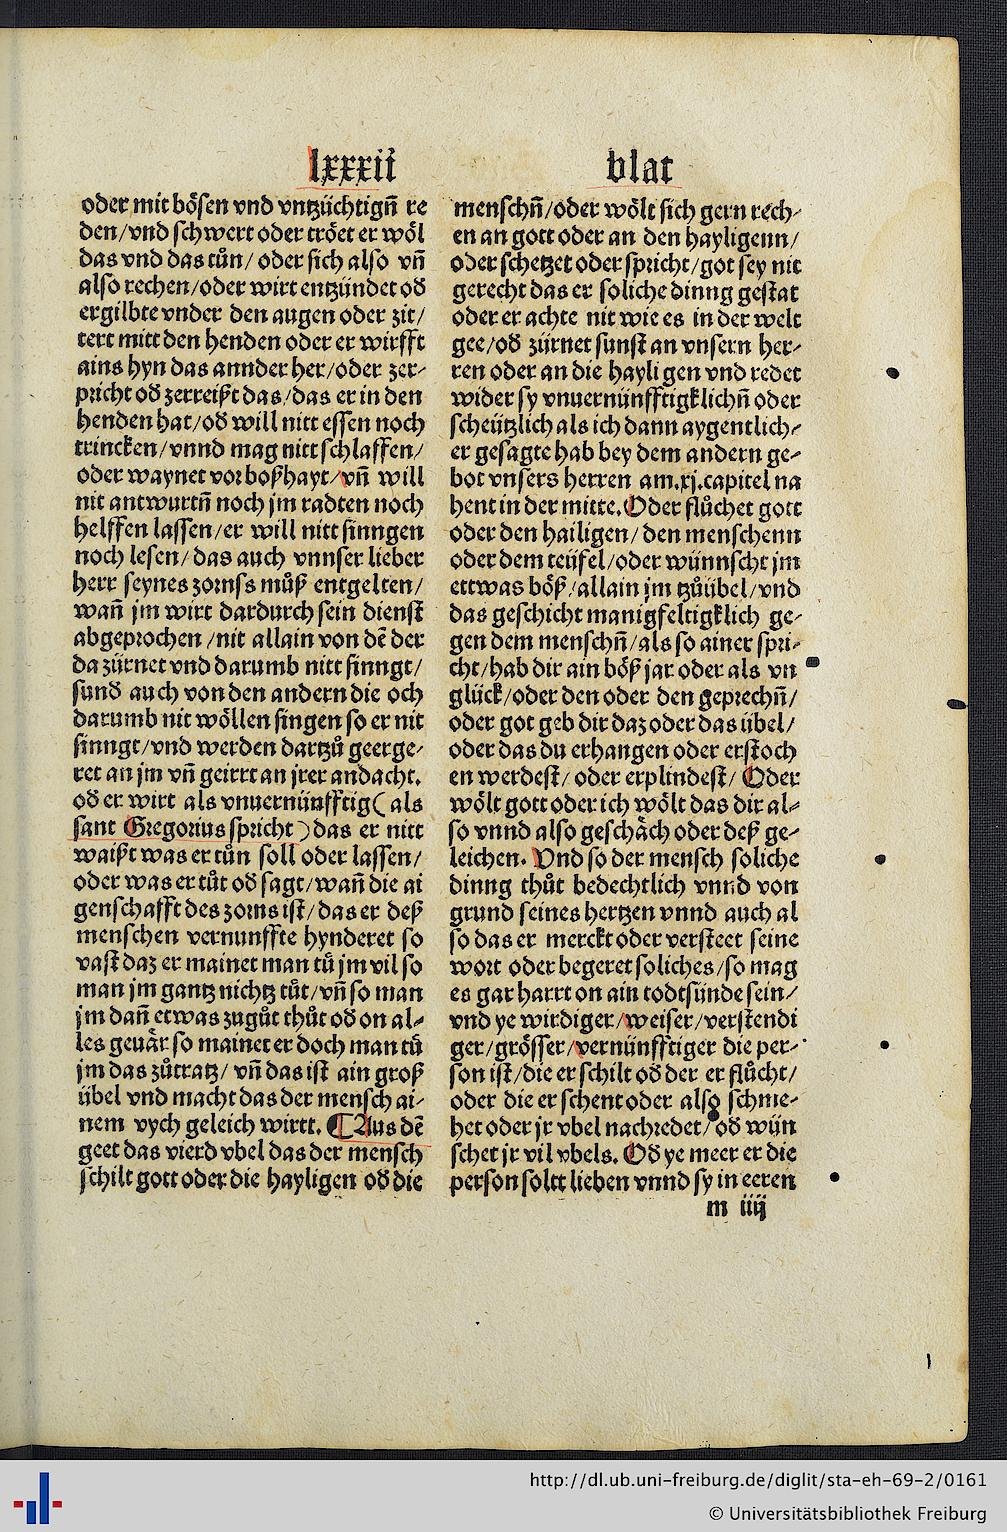 lxxxii blat
oder mit bösen vnd vntzüchtign̄ re
den/vnd schwert oder tröet er wöl
das vnd das tůn/ oder sich also vn̄
also rechen/oder wirt entzündet od̓
ergilbte vnder den augen oder zit/
tert mitt den henden oder er wirfft
ains hyn das annder her/oder zer⸗
pricht od̓ zerreißt das/das er in den
henden hat/od̓ will nitt essen noch
trincken/vnnd mag nitt schlaffen/
oder waynet vor boßhayt/vn̄ will
nit antwurtn̄ noch jm radten noch
helffen lassen/er will nitt finngen
noch lesen/das auch vnnser lieber
herr seynes zorns můß entgelten/
wan̄ jm wirt dardurch sein dienst
abgeprochen/nit allain von dē der
da zürnet vnd darumb nitt singt/
sund̓ auch von den andern die och
darumb nit wöllen singen so er nit
sinngt/vnd werden dartzů geerge⸗
ret an jm vn̄ geirrt an jrer andacht.
od̓ er wirt als vnuernünfftig(als
sant Gregorius spricht)das er nitt
waißt was er tůn soll oder lassen/
oder was er tůt od̓ sagt/wan̄ die ai
genschafft des zorns ist/das er deß
menschen vernunffte hynderet so
vast daz er mainet man tů jm vil so
man jm gantz nichtz tůt/vn̄ so man
jm dan̄ etwas zugůt thůt od̓ on al⸗
les geuär so mainet er doch man tů
jm das zůtratz/ vn̄ das ist ain groß
übel vnd macht das der mensch ai⸗
nem vych geleich wirtt. ¶Aus dē
geet das vierd vbel das der mensch
schilt gott oder die hayligen od̓ die
menschn̄/oder wölt sich gern rech⸗
en an gott oder an den hayligenn/
oder schetzet oder spricht/got sey nit
gerecht das er soliche dinng gestat
oder er achte nit wie es in der welt
gee/od̓ zürnet sunst an vnsern her⸗
ren oder an die hayli gen vnd redet
wider sy vnuernünfftigklichn̄ oder
scheützlich als ich dann aygentlich⸗
er gesagte hab bey dem andern ge⸗
bot vnsers herren am.xj.capitel na
hent in der mitte.Oder flůchet gott
oder den hailigen/den menschenn
oder dem teüfel/oder wünnscht jm
ettwas böß/allain jm tzůübel/vnd
das geschicht manigfeltigklich ge⸗
gen dem menschn̄/als so ainer spri⸗
cht/hab dir ain böß jar oder als vn
glück/oder den oder den geprechn̄/
oder got geb dir daz oder das übel/
oder das du erhangen oder erstoch
en werdest/ oder erplindest/ Oder
wölt gott oder ich wölt das dir al⸗
so vnnd also geschäch oder deß ge⸗
leichen. Vnd so der mensch soliche
dinng thůt bedechtlich vnnd von
grund seines hertzen vnnd auch al
so das er merckt oder versteet seine
wort oder begeret soliches/so mag
es gar harrt on ain todtsünde sein/
vnd ye wirdiger/weiser/verstendi
ger/grösser/vernünfftiger die per⸗
son ist/die er schilt od̓ der er flůcht/
oder die er schent oder also schme⸗
het oder jr vbel nachredet/od̓ wün
schet jr vil vbels. Od̓ ye meer er die
person soltt lieben vnnd sy in eeren
m iiij
http://dl.ub.uni-freiburg.de/diglit/sta-eh-69-2/0161
© Universitätsbibliothek Freiburg